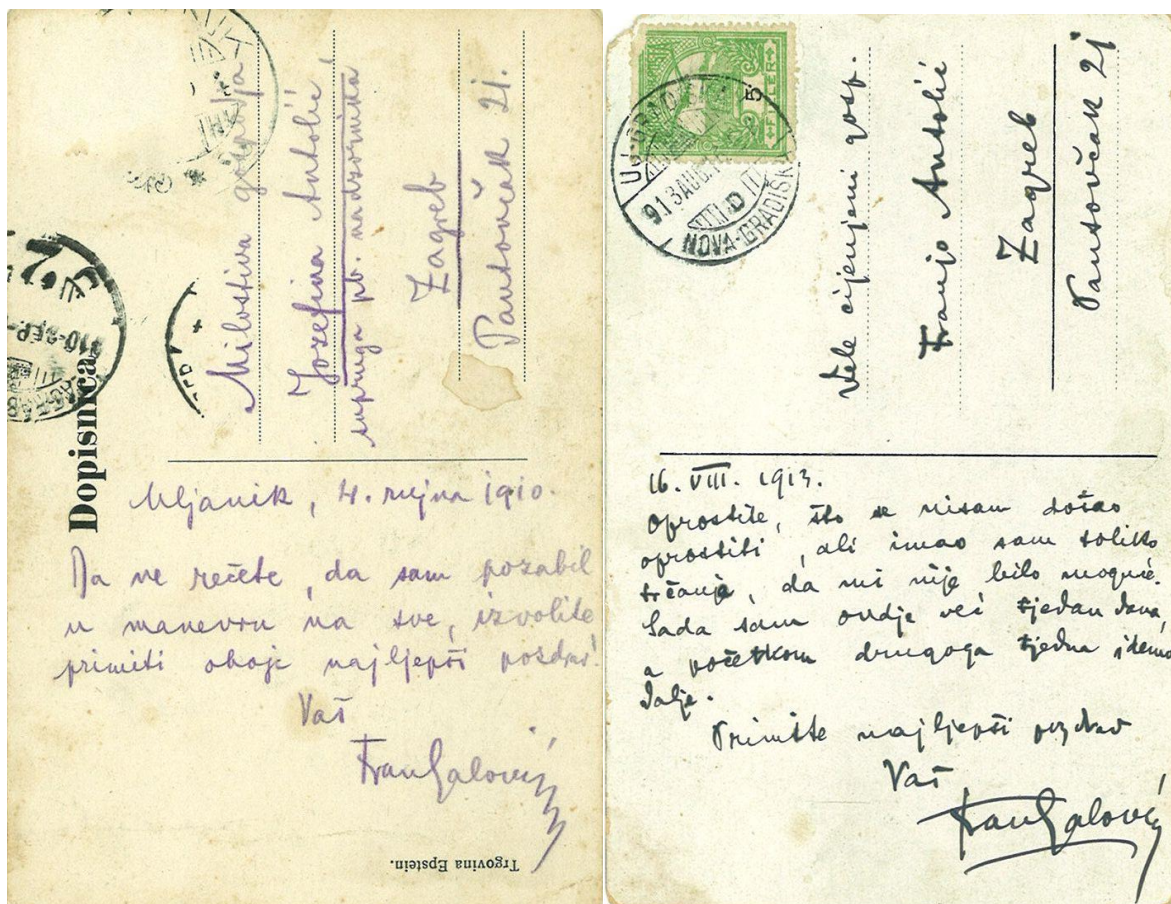 Dopisnica
Milostiva gospodja
Jozefina Antolić,
supruga pb. nadzornika
Zagreb
Pantovčak 21.
Mljanik, 4. rujna 1910.
Da ne rečete, da sam pozabil
u manevru na sve, izvolite
primiti oboje najljepši pozdrav.
Vaš
Fran Galović
Trgovina Epstein.
5
FILLER
913 AUG. 1
NOVA-GRADIŠK
Vele cijenjeni gosp.
Franjo Antolić
Zagreb
Pantovčak 21
16. VIII. 1913.
Oprostite, što se nisam došao
oprostiti, ali imao sam toliko
trčanja, da mi nije bilo moguće.
Sada sam ovdje već tjedan dana,
a početkom drugoga tjedna idemo
dalje.
Primite najljepši pozdrav
Vaš
Fran Galović